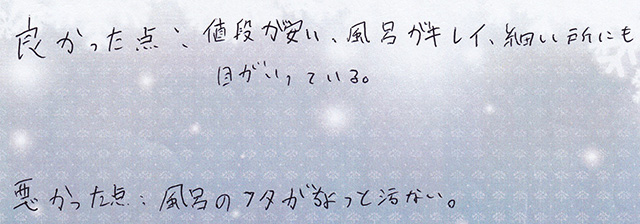 良かった点：値段が安い、風呂がキレイ、細い所にも
目がいっている。
悪かった点：風呂のフタがちょっと汚ない。